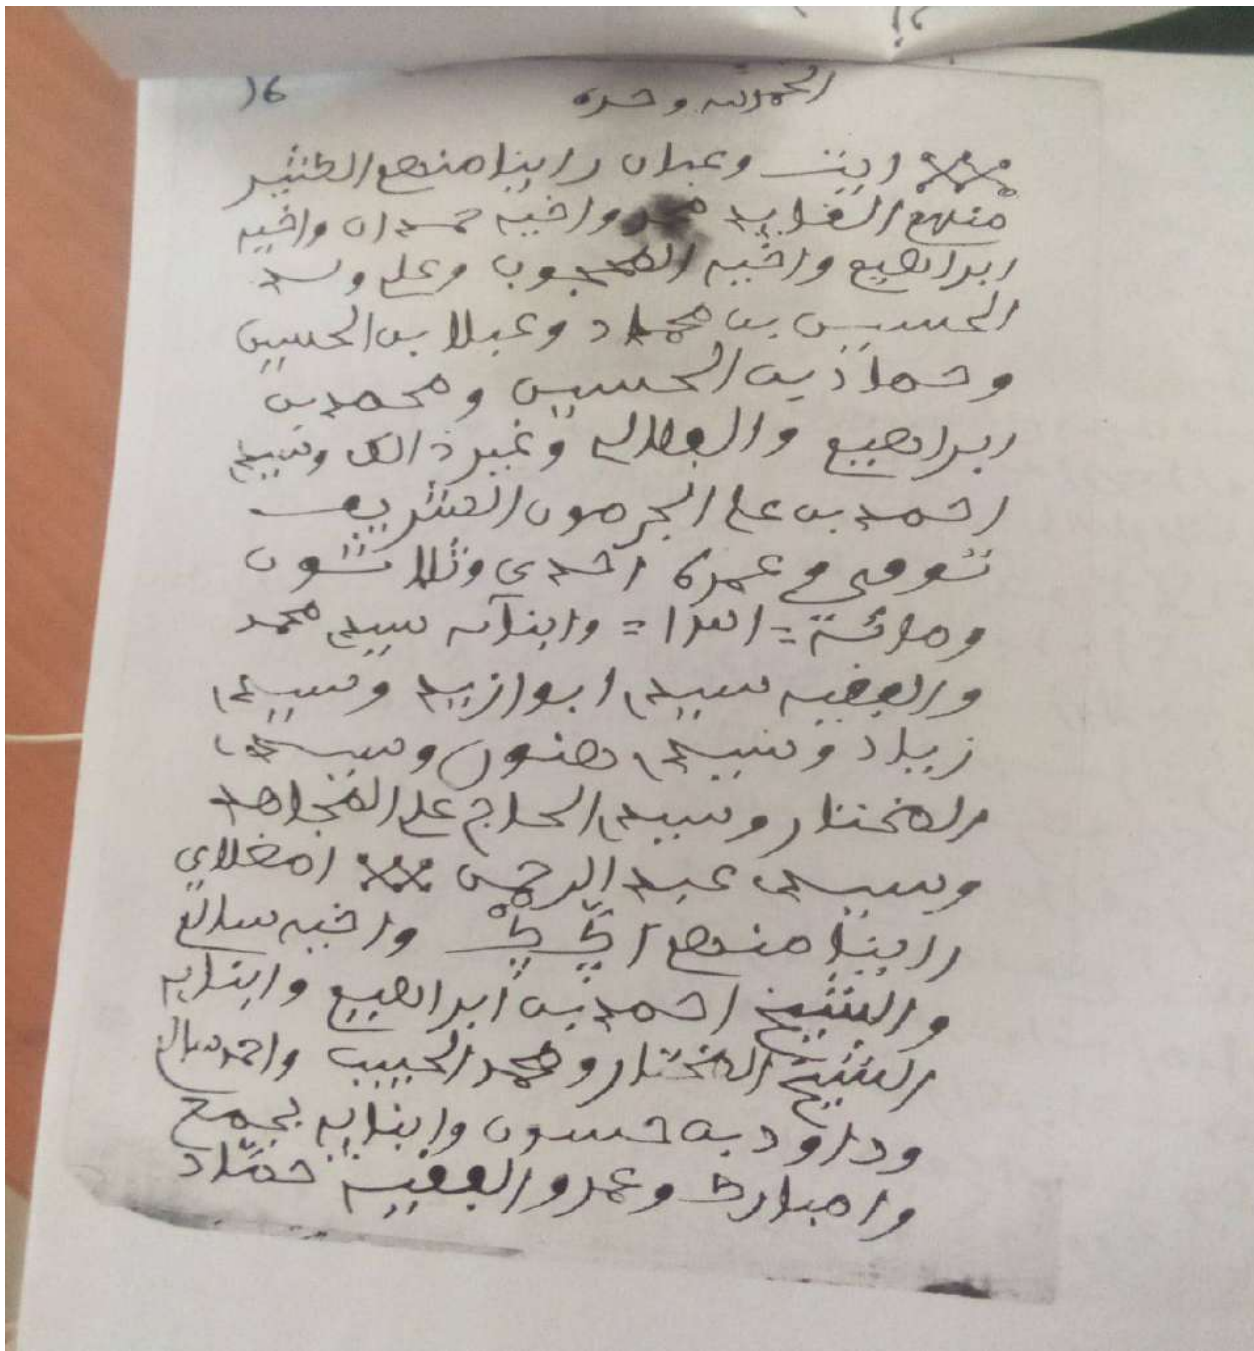 الحمد لله وحده 16
ايت وعبان راينا منهم الكثير
منهم القايد محمد واخيه حمدان واخيه
ابراهيم واخيه المحجوب وعلي ولد
الحسين بن محماد وعبلا بن الحسين
وحماد بن الحسين ومحمد بن
ابراهيم والبطاله وغير ذالك وسيدي
احمد بن علي الجرمون الشريف
توفي وعمره احدى وثلاثون
ومائة = ابدا = وابنآه سيدي محمد
والفقيه سيدي ابوازيد وسيدي
زياد وسيدي هنون وسيدي
المختار وسيدي الحاج علي المجاهد
وسيدي عبد الرحمن امغلاي
راينا منهم واخيه سالم
والشيخ احمد بن ابراهيم وابنايه
الشيخ المختار ومحمد الحبيب واحمد سالم
وداود بن حسون وابنايه بجمع
وامبارك وعمر والفقيه حماد